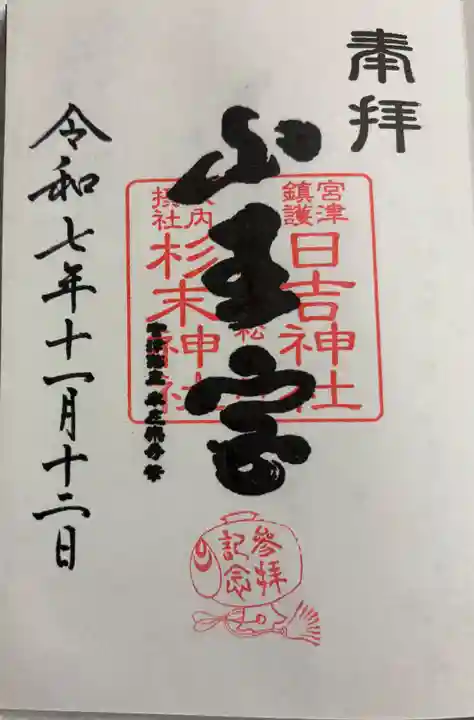 奉拝
宮津
鎮護
日吉神社
山王宮
杉末神社
令和七年十一月十二日
參拝
記念